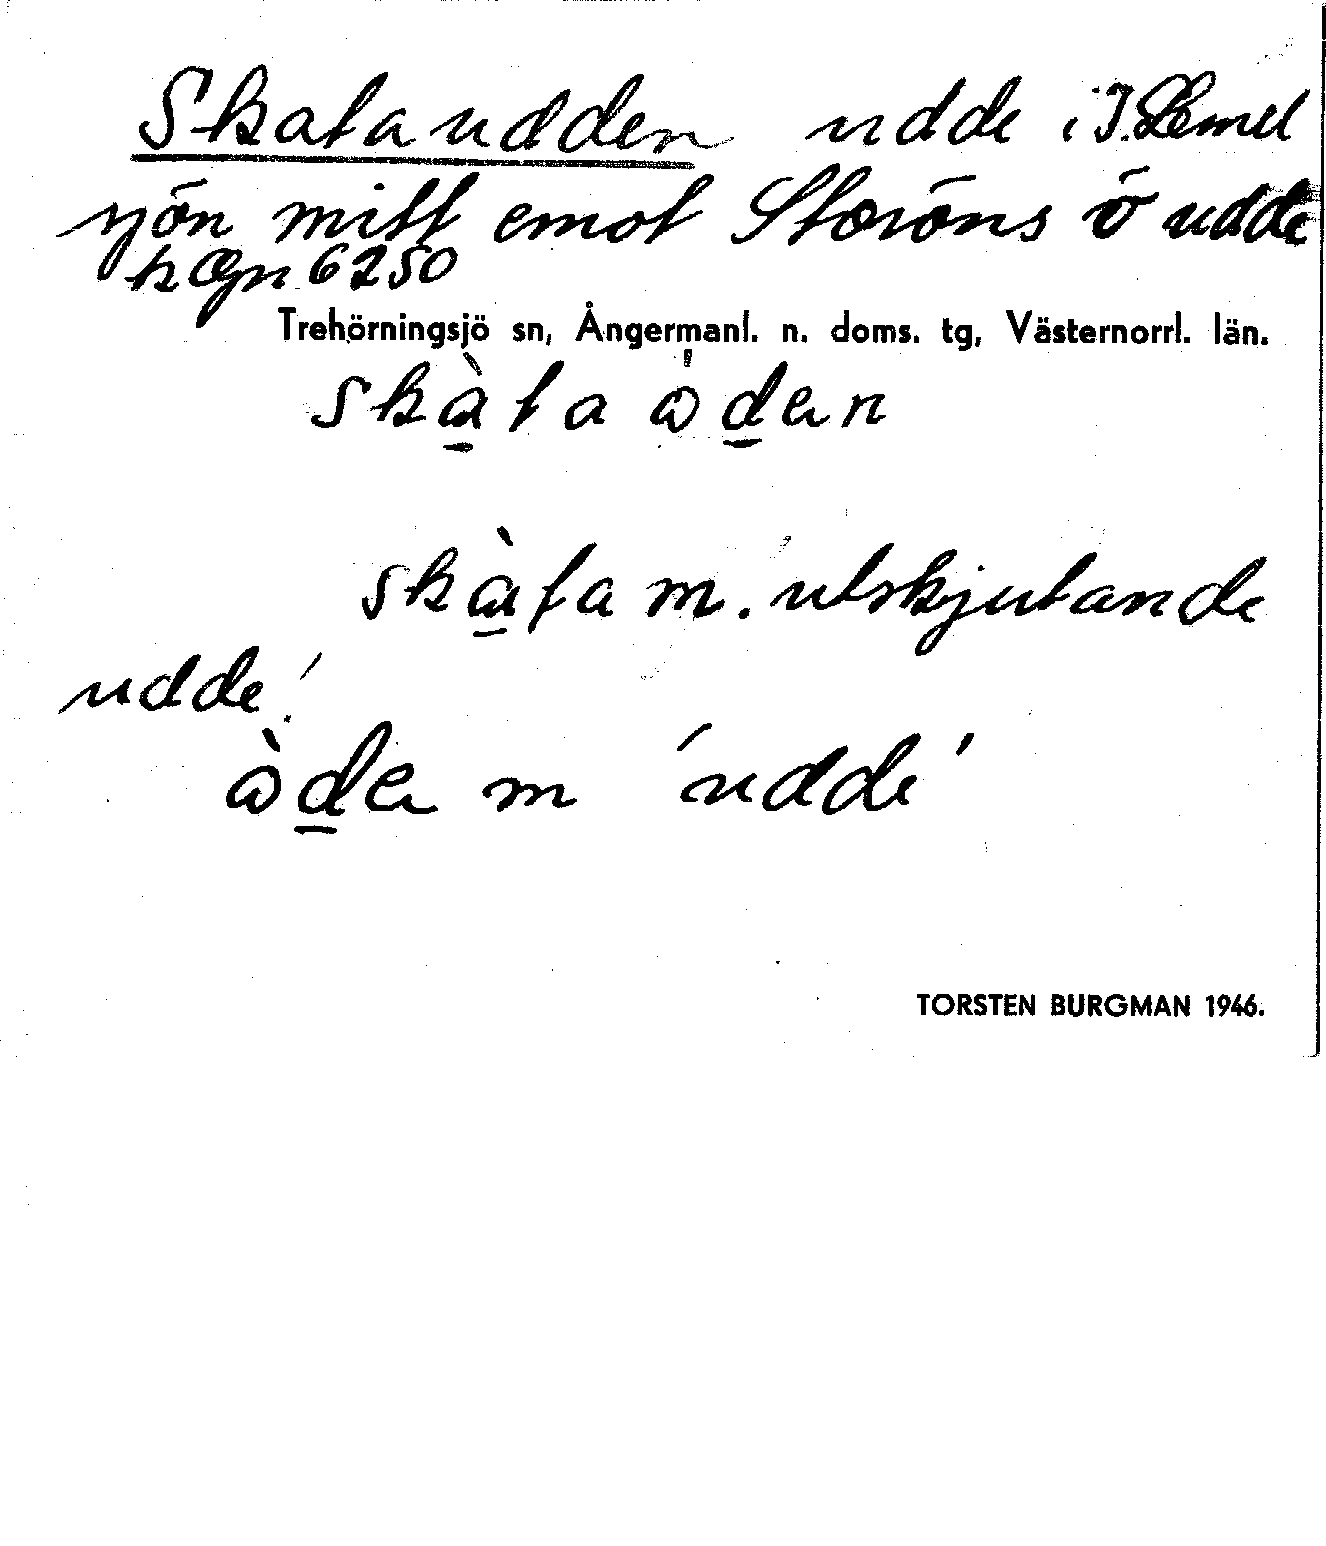 Skataudden udde i I. Lemel
sjön mitt emot Storöns ö udde
h Ögn 6250
Trehörningsjö sn, Ångermanl. n. doms. tg, Västernorrl. län.
skàta ò̱den
skàta m. 'utskjutande
udde'
òde m 'udde'
TORSTEN BURGMAN 1946.